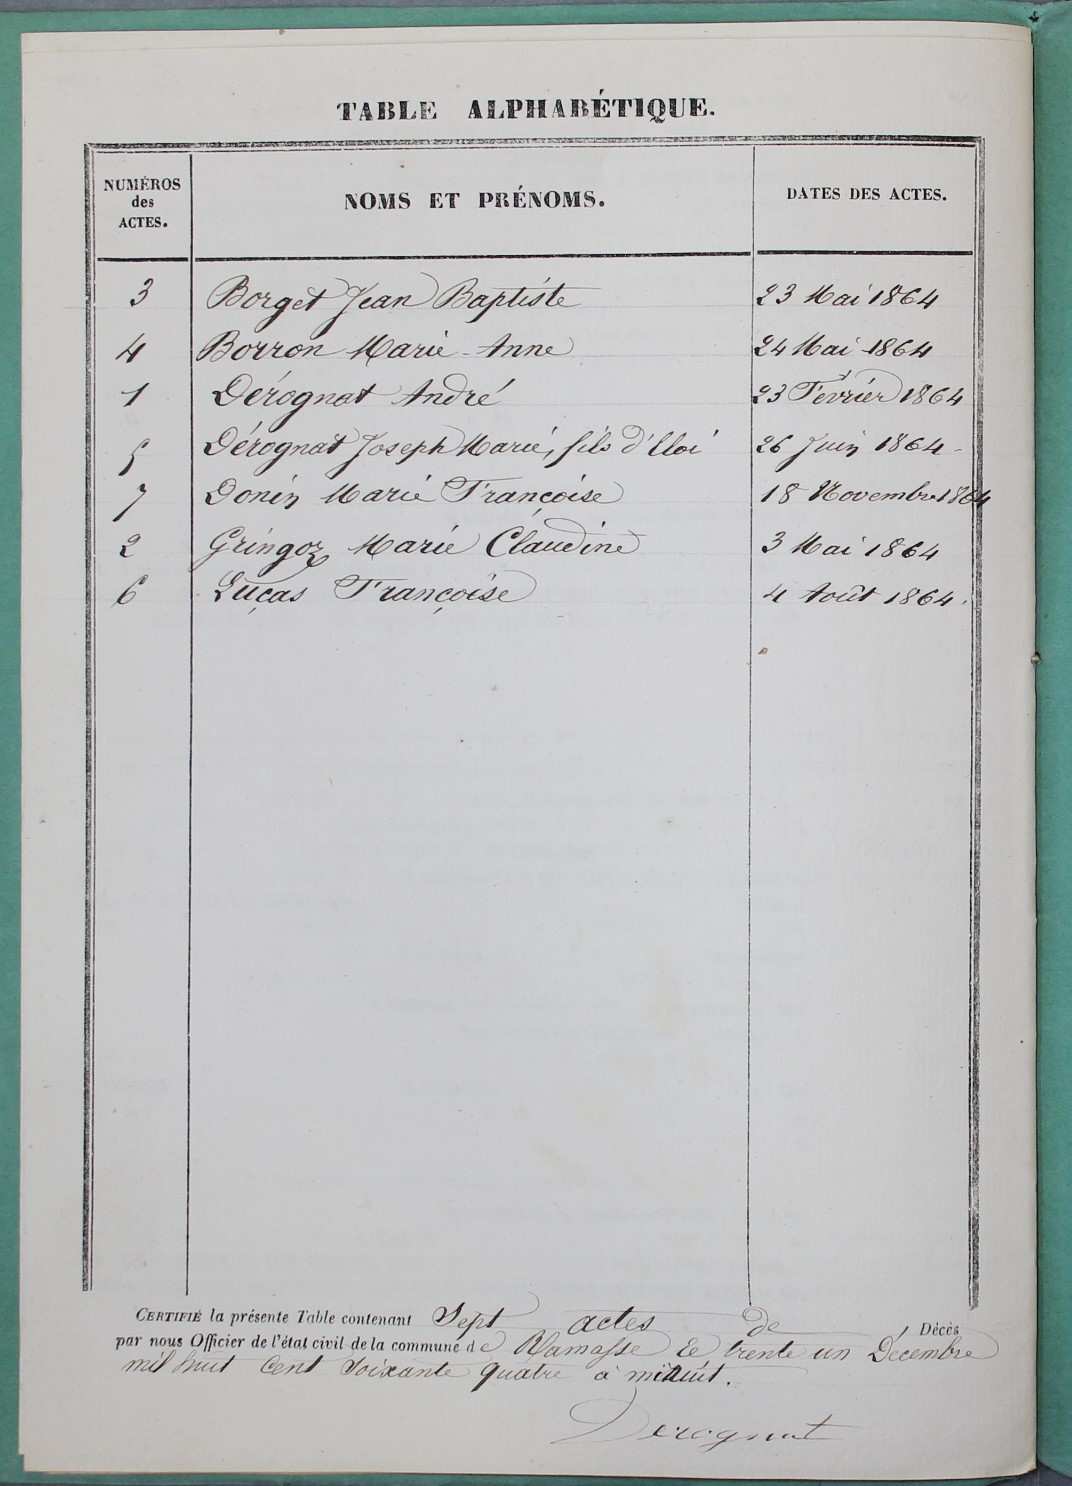 TABLE ALPHABÉTIQUE.
NUMÉROS des ACTES.
NOMS ET PRÉNOMS.
DATES DES ACTES.
3 Borget Jean Baptiste 23 Mai 1864
4 Borron Marie-Anne 24 Mai 1864
1 Dérognat André 23 Février 1864
5 Dérognat Joseph Marie, fils d'Eloi 26 Juin 1864
7 Donin Marie Françoise 18 Novembre 1864
2 Gringoz Marie Claudine 3 Mai 1864
6 Luças Françoise 4 Août 1864.
CERTIFIÉ la présente Table contenant Sept actes de Décès
par nous Officier de l'état civil de la commune de Ramasse Le trente un Décembre
mil huit cent soixante quatre à minuit.
Derognat